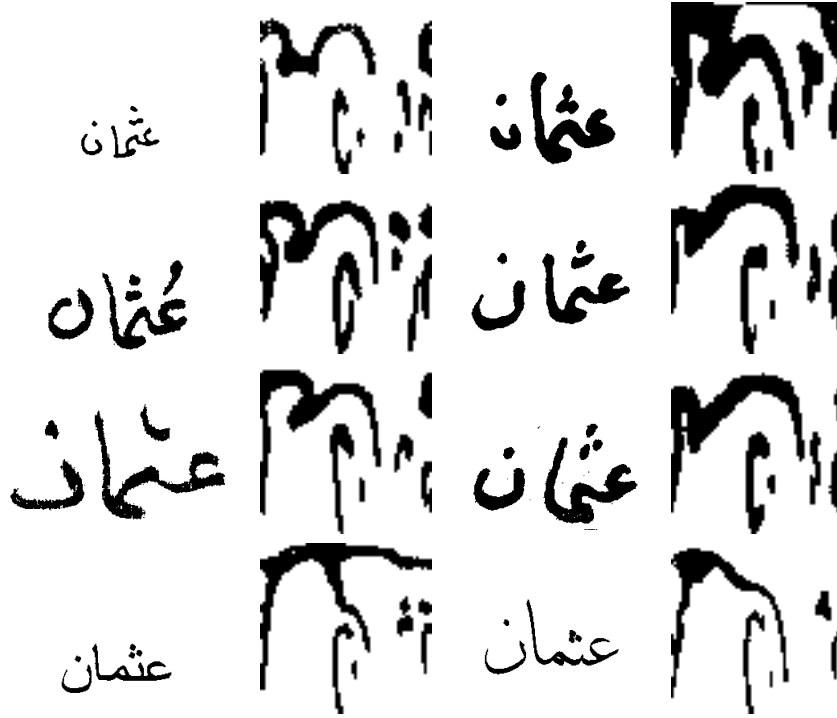 عثمان
عثمان
عُثمان
عثمان
عثمان
عثمان
عثمان
عثمان